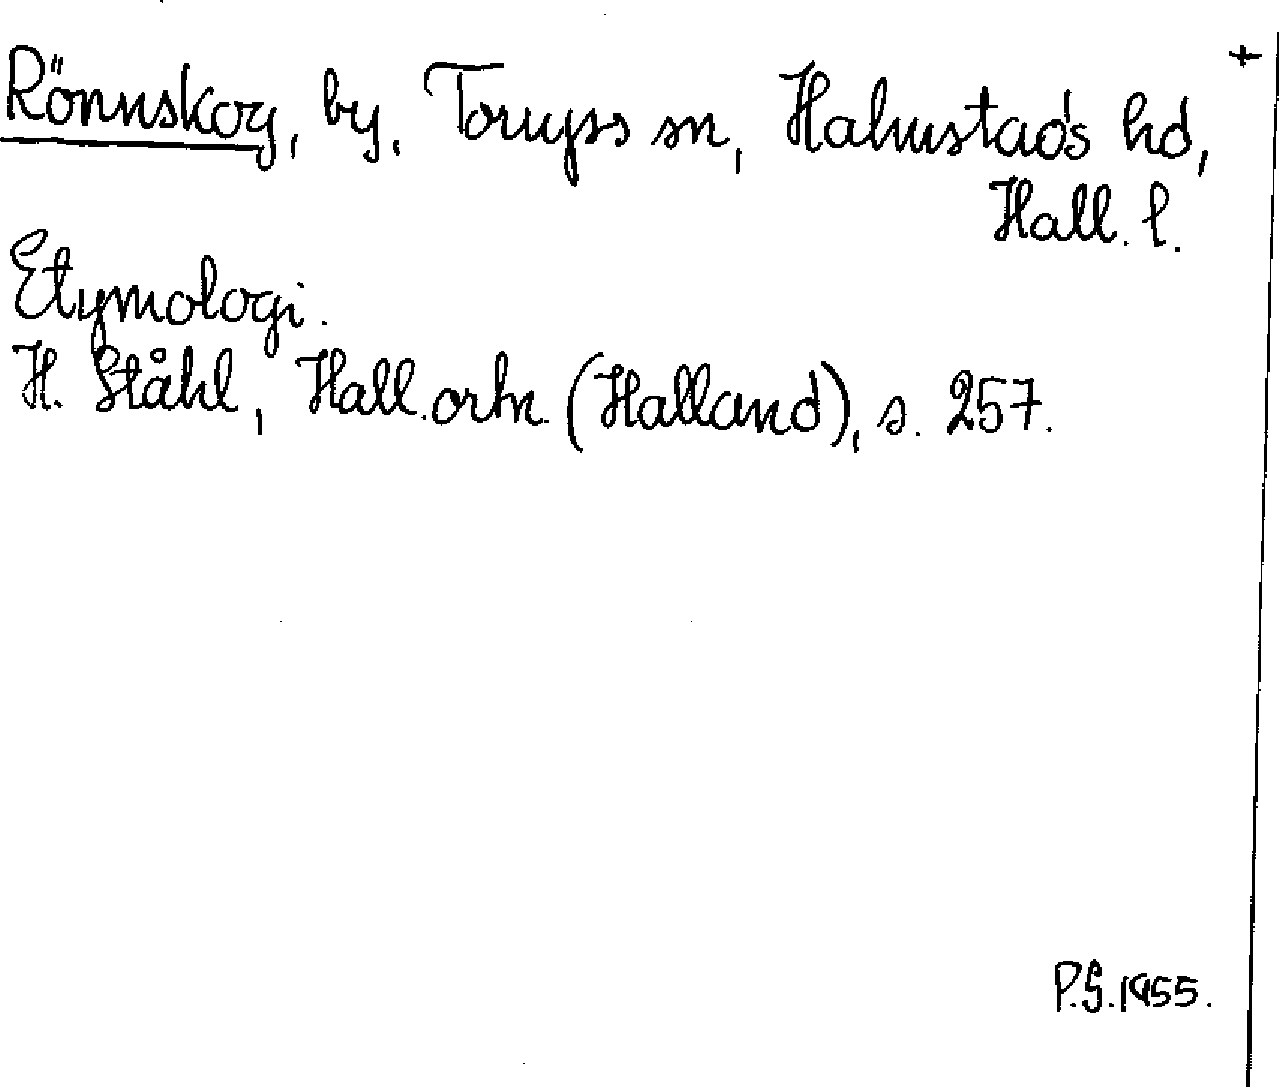 +
Rönnskog, by, Torups sn, Halmstads hd,
Hall. l.
Etymologi.
H. Ståhl, Hall. ortn. (Halland), s. 257.
P.G. 1955.